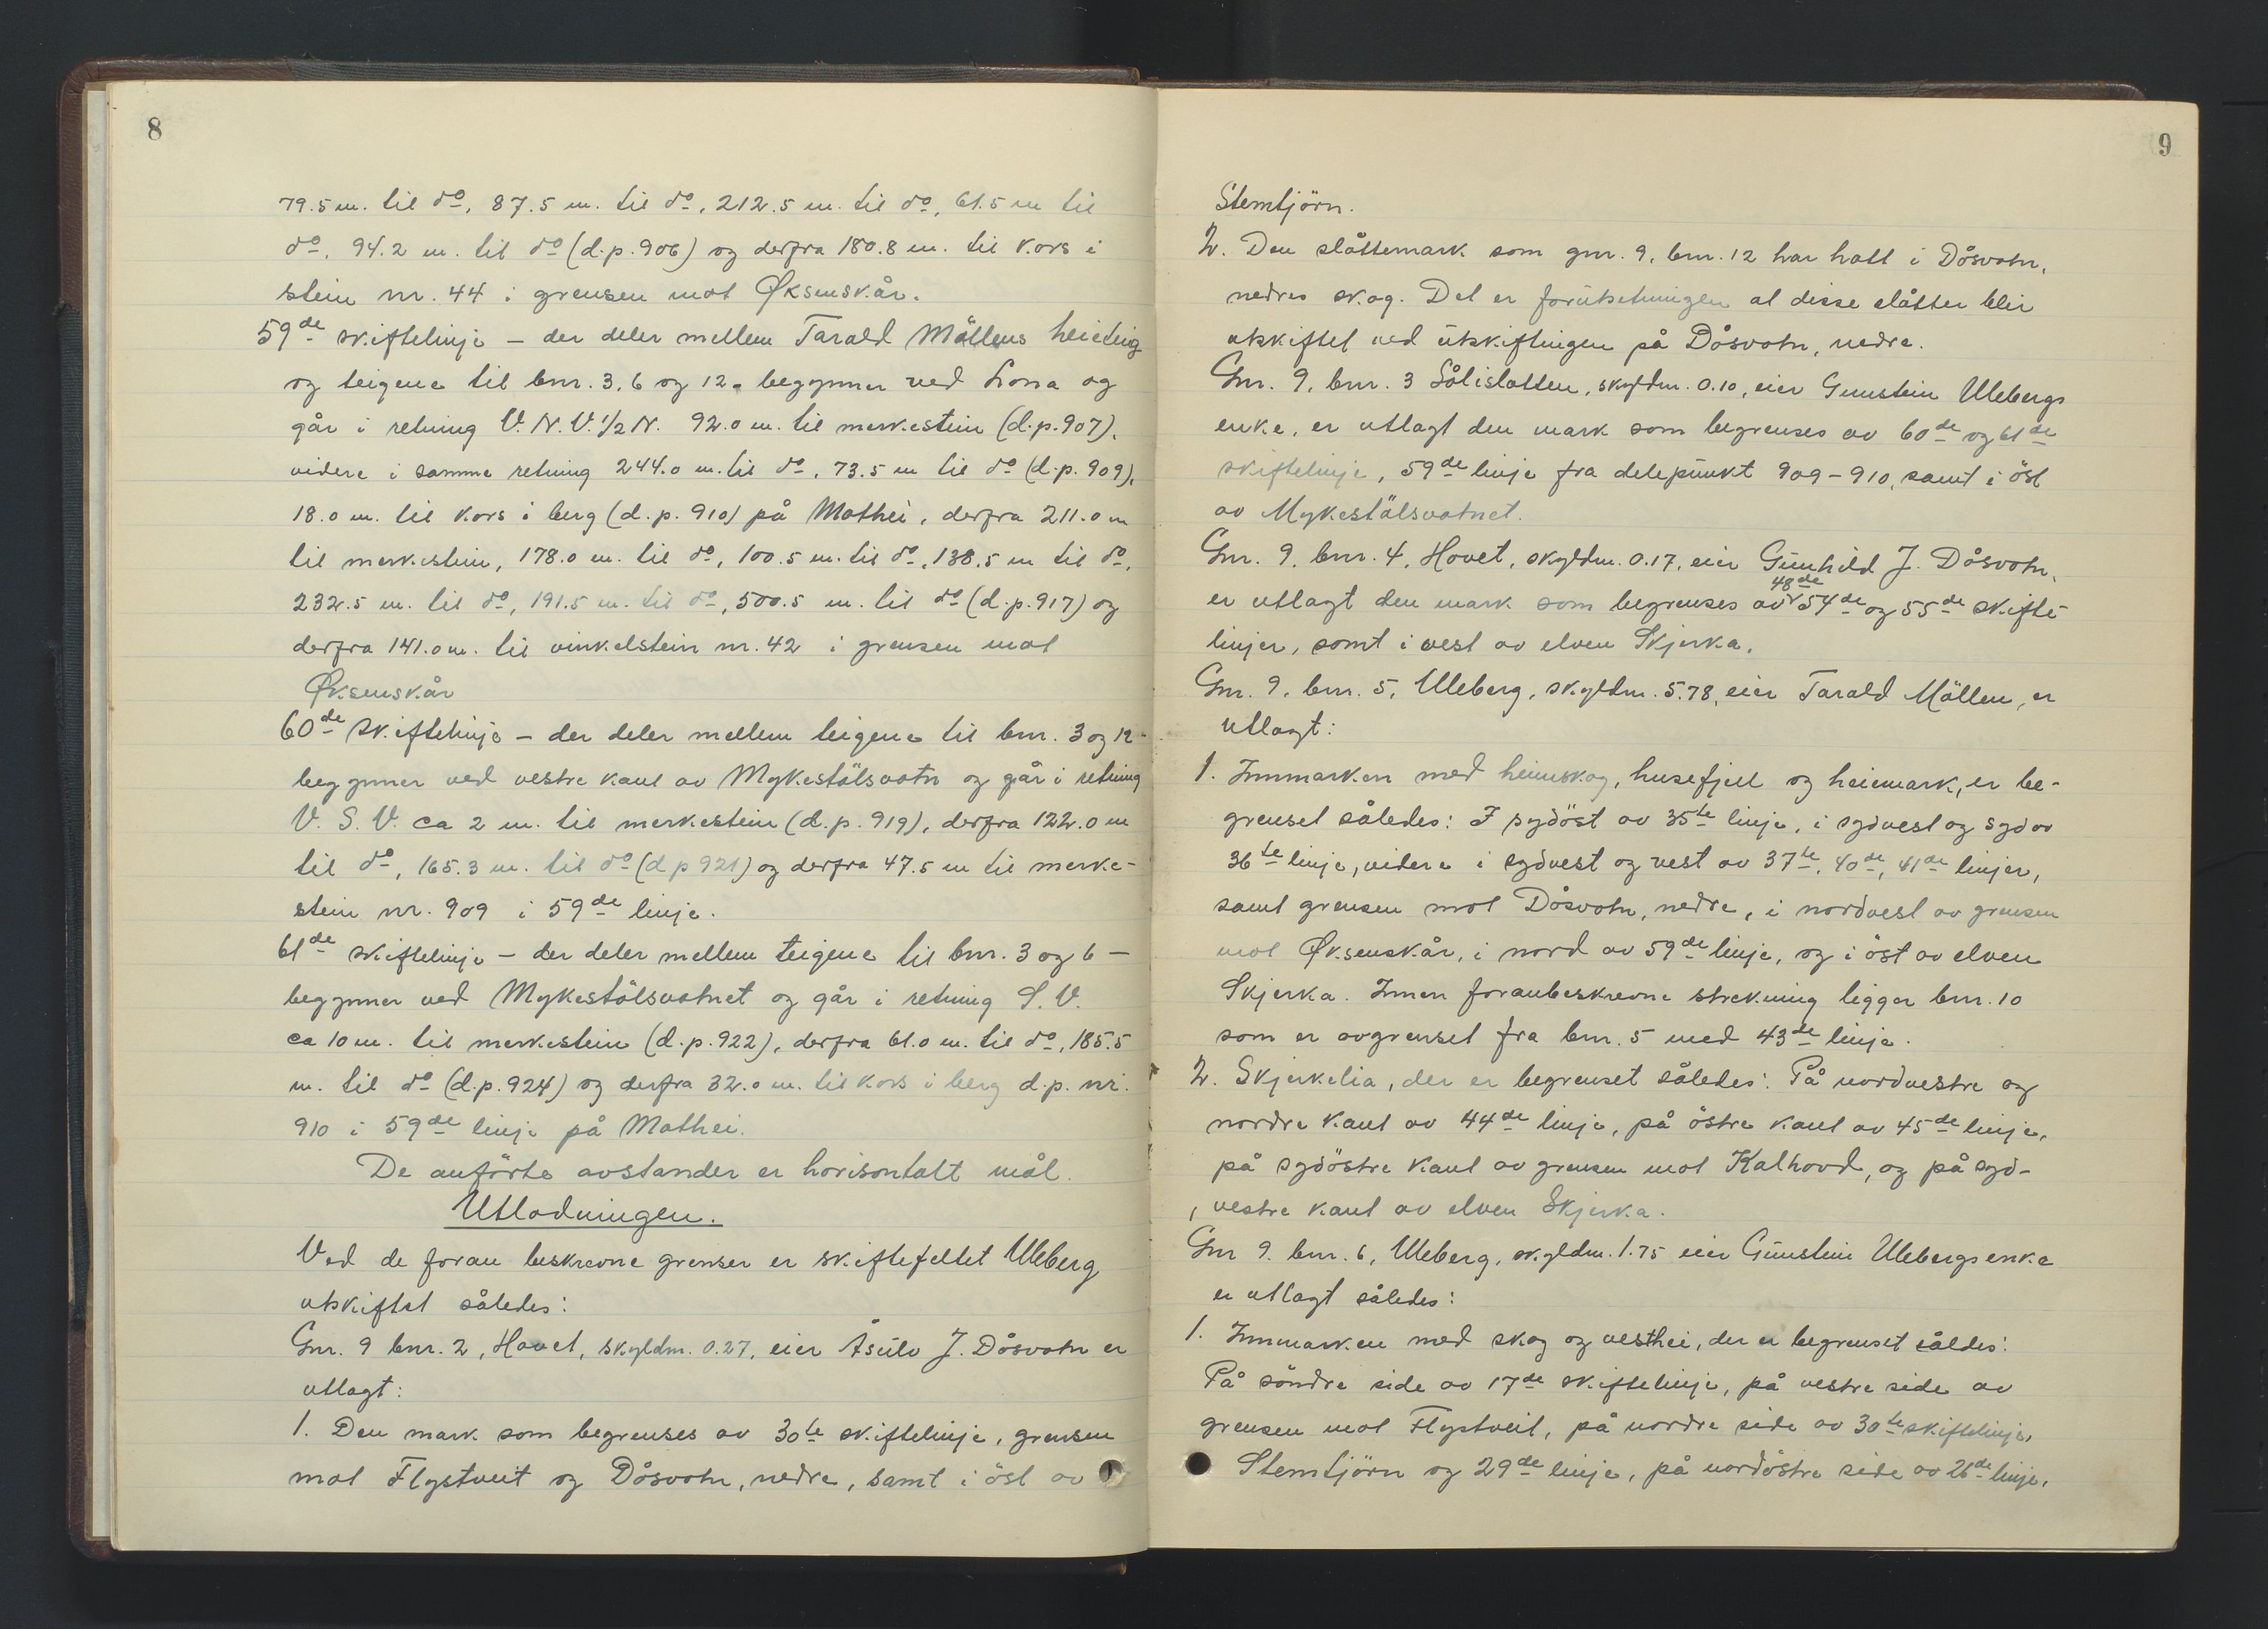 8
79.5 m. til do, 87.5 m. til do, 212.5 m. til do, 61.5 m til
do, 94.2 m. til do (d.p. 906) og derfra 180.8 m. til kors i
stein nr. 44 i grensen mot Øksenskår.
59de skiftelinje – der deler mellem Tarald Möllens heieteig
og teigene til bnr. 3, 6 og 12 – begynner ved Lona og
går i retning V. N. V. 1/2 N. 92.0 m. til merkestein (d.p. 907),
videre i samme retning 244.0 m. til do, 73.5 m til do (d.p. 909),
18.0 m. til kors i berg (d.p. 910) på Mathei, derfra 211.0 m
til merkestein, 178.0 m. til do, 100.5 m. til do, 138.5 m til do,
232.5 m. til do, 191.5 m. til do, 500.5 m. til do (d.p. 917) og
derfra 141.0 m. til vinkelstein nr. 42 i grensen mot
Øksenskår
60de skiftelinje – der deler mellem teigene til bnr. 3 og 12 –
begynner ved vestre kant av Mykestölsvatn og går i retning
V. S. V. ca 2 m. til merkestein (d.p. 919), derfra 122.0 m
til do, 165.3 m. til do (d p 921) og derfra 47.5 m til merke-
stein nr. 909 i 59de linje.
61de skiftelinje – der deler mellem teigene til bnr. 3 og 6 –
begynner ved Mykestölsvatnet og går i retning S. V.
ca 10 m. til merkestein (d.p. 922), derfra 61.0 m. til do, 185.5
m. til do (d.p. 924) og derfra 32.0 m. til kors i berg d.p. nr.
910 i 59de linje på Mathei.
De anförte avstander er horisontalt mål.
Utlodningen.
Ved de foran beskrevne grenser er skiftefeltet Uleberg
utskiftet således:
Gnr. 9 bnr. 2, Hovet, skyldm. 0.27, eier Åsulv J. Dåsvatn er
utlagt:
1. Den mark som begrenses av 30te skiftelinje, grensen
mot Flystveit og Dåsvatn, nedre, samt i öst av
9
Stemtjörn.
2. Den slåttemark som gnr. 9, bnr. 12 har hatt i Dåsvatn,
nedres skog. Det er forutsetningen at disse slåtter blir
utskiftet ved utskiftningen på Dåsvatn, nedre.
Gnr. 9, bnr. 3 Sålislatten, skyldm. 0.10, eier Gunstein Ulebergs
enke, er utlagt den mark som begrenses av 60de og 61de
skiftelinje, 59de linje fra delepunkt 909–910, samt i öst
av Mykestölsvatnet.
Gnr. 9, bnr. 4, Hovet, skyldm. 0.17, eier Gunhild J. Dåsvatn,
48de
er utlagt den mark som begrenses av 54de og 55de skifte-
linjer, samt i vest av elven Skjerka.
Gnr. 9, bnr. 5, Uleberg, skyldm. 5.78, eier Tarald Möllen, er
utlagt:
1. Innmarken med heimskog, husefjell og heiemark, er be-
grenset således: I sydöst av 35te linje, i sydvest og syd av
36te linje, videre i sydvest og vest av 37te, 40de, 41de linjer,
samt grensen mot Dåsvatn, nedre, i nordvest av grensen
mot Øksenskår, i nord av 59de linje, og i öst av elven
Skjerka. Innen foranbeskrevne strekning ligger bnr. 10
som er avgrenset fra bnr. 5 med 43de linje.
2. Skjerkelia, der er begrenset således: På nordvestre og
nordre kant av 44de linje, på östre kant av 45de linje,
på sydöstre kant av grensen mot Kalhovd, og på syd-
vestre kant av elven Skjerka.
Gnr 9. bnr. 6, Uleberg, skyldm. 1.75 eier Gunstein Ulebergs enke
er utlagt således:
1. Innmarken med skog og vesthei, der er begrenset såldes:
På söndre side av 17de skiftelinje, på vestre side av
grensen mot Flystveit, på nordre side av 30te skiftelinje,
Stemtjörn og 29de linje, på nordöstre side av 26de linje,